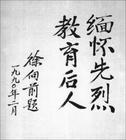 缅怀先烈
教育后人
徐向前题
一九九〇年二月